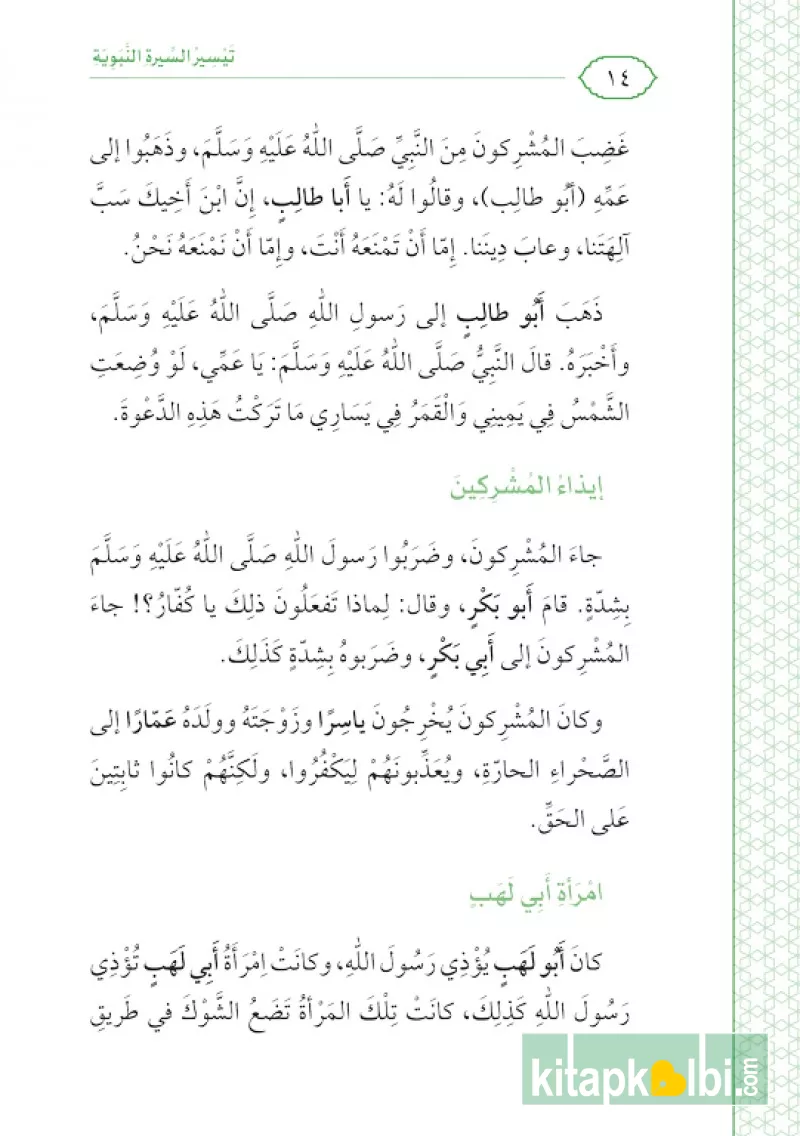 تَيْسِيرُ السِّيرةِ النَّبَوِيَّةِ
١٤
غَضِبَ المُشْرِكونَ مِنَ النَّبِيِّ صَلَّى اللّٰهُ عَلَيْهِ وَسَلَّمَ، وذَهَبُوا إلى
عَمِّهِ (أَبُو طالِب)، وقالُوا لَهُ: يا أَبا طالِبٍ، إِنَّ ابْنَ أَخِيكَ سَبَّ
آلِهَتَنا، وعابَ دِينَنا. إِمّا أَنْ تَمْنَعَهُ أَنْتَ، وإِمّا أَنْ نَمْنَعَهُ نَحْنُ.
ذَهَبَ أَبُو طالِبٍ إلى رَسولِ اللّٰهِ صَلَّى اللّٰهُ عَلَيْهِ وَسَلَّمَ،
وأَخْبَرَهُ. قالَ النَّبِيُّ صَلَّى اللّٰهُ عَلَيْهِ وَسَلَّمَ: يَا عَمِّي، لَوْ وُضِعَتِ
الشَّمْسُ فِي يَمِينِي وَالْقَمَرُ فِي يَسَارِي مَا تَرَكْتُ هَذِهِ الدَّعْوةَ.
إيذاءُ المُشْرِكِينَ
جاءَ المُشْرِكونَ، وضَرَبُوا رَسولَ اللّٰهِ صَلَّى اللّٰهُ عَلَيْهِ وَسَلَّمَ
بِشِدّةٍ. قامَ أَبو بَكْرٍ، وقال: لِماذا تَفعَلُونَ ذلِكَ يا كُفّارُ؟! جاءَ
المُشْرِكونَ إلى أَبِي بَكْرٍ، وضَرَبوهُ بِشِدّةٍ كَذَلِكَ.
وكانَ المُشْرِكونَ يُخْرِجُونَ ياسِرًا وزَوْجَتَهُ وولَدَهُ عَمّارًا إلى
الصَّحْراءِ الحارّةِ، ويُعَذِّبونَهُمْ لِيَكْفُرُوا، ولَكِنَّهُمْ كانُوا ثابِتِينَ
عَلى الحَقِّ.
امْرَأةِ أَبِي لَهَبٍ
كانَ أَبُو لَهَبٍ يُؤْذِي رَسُولَ اللّٰهِ، وكانَتْ اِمْرَأَةُ أَبِي لَهَبٍ تُؤْذِي
رَسُولَ اللّٰهِ كَذَلِكَ، كانَتْ تِلْكَ المَرْأةُ تَضَعُ الشَّوْكَ في طَريقِ
kitapkalbi.com